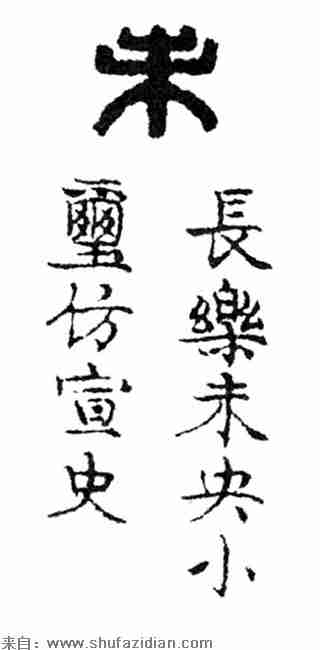 未
長樂未央小
璽仿宣史
来自：www.shufazidian.com